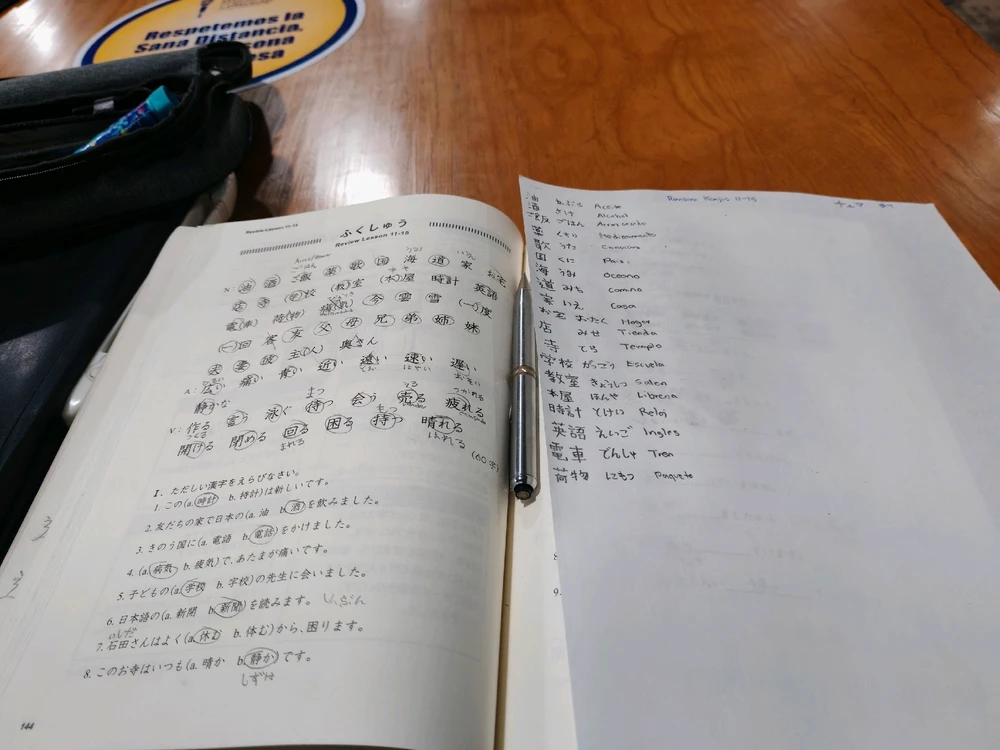 Respetemos la
Sana Distancia.
Review Lesson 11-15
ふくしゅう
Review Lesson 11-15
ごはん
N: 油 酒 ご飯 薬 歌 国 海 道 家 お宅
店 寺 学校 (教)室 (本)屋 時計 英語
電(車) 荷(物) 病(気) 冬 雲 雪 (一)度
(一)回 客 友 父 母 兄 弟 姉 妹
夫 妻 彼 主(人) 奥さん
A: 広い 痛い 青い 近い 遠い 速い 遅い
静かな
V: 作る 言う 泳ぐ 待つ 会う 売る 疲れる
開ける 閉める 回る 困る 持つ 晴れる
(60字)
I. ただしい漢字をえらびなさい。
1. この(a.時計 b. 持計)は新しいです。
2. 友だちの家で日本の(a. 油 b.酒)を飲みました。
3. きのう国に(a. 電語 b.電話)をかけました。
4. (a.病気 b. 疲気)で、あたまが痛いです。
5. 子どもの(a.学校 b. 字校)の先生に会いました。
6. 日本語の(a. 新開 b.新聞)を読みます。
7. 石田さんはよく(a.休む b. 体む)から、困ります。
8. このお寺はいつも(a. 晴か b.静か)です。
144
油 あぶら Aceite
酒 さけ Alcohol
ご飯 ごはん
薬 くすり Medicamento
歌 うた
国 くに País
海 うみ Oceano
道 みち camino
家 いえ Casa
お宅 おたく Hogar
店 みせ Tienda
寺 てら Templo
学校 がっこう Escuela
教室 きょうしつ Salon
本屋 ほんや Libreria
時計 とけい Reloj
英語 えいご Ingles
電車 でんしゃ Tren
荷物 にもつ Paquete
9.